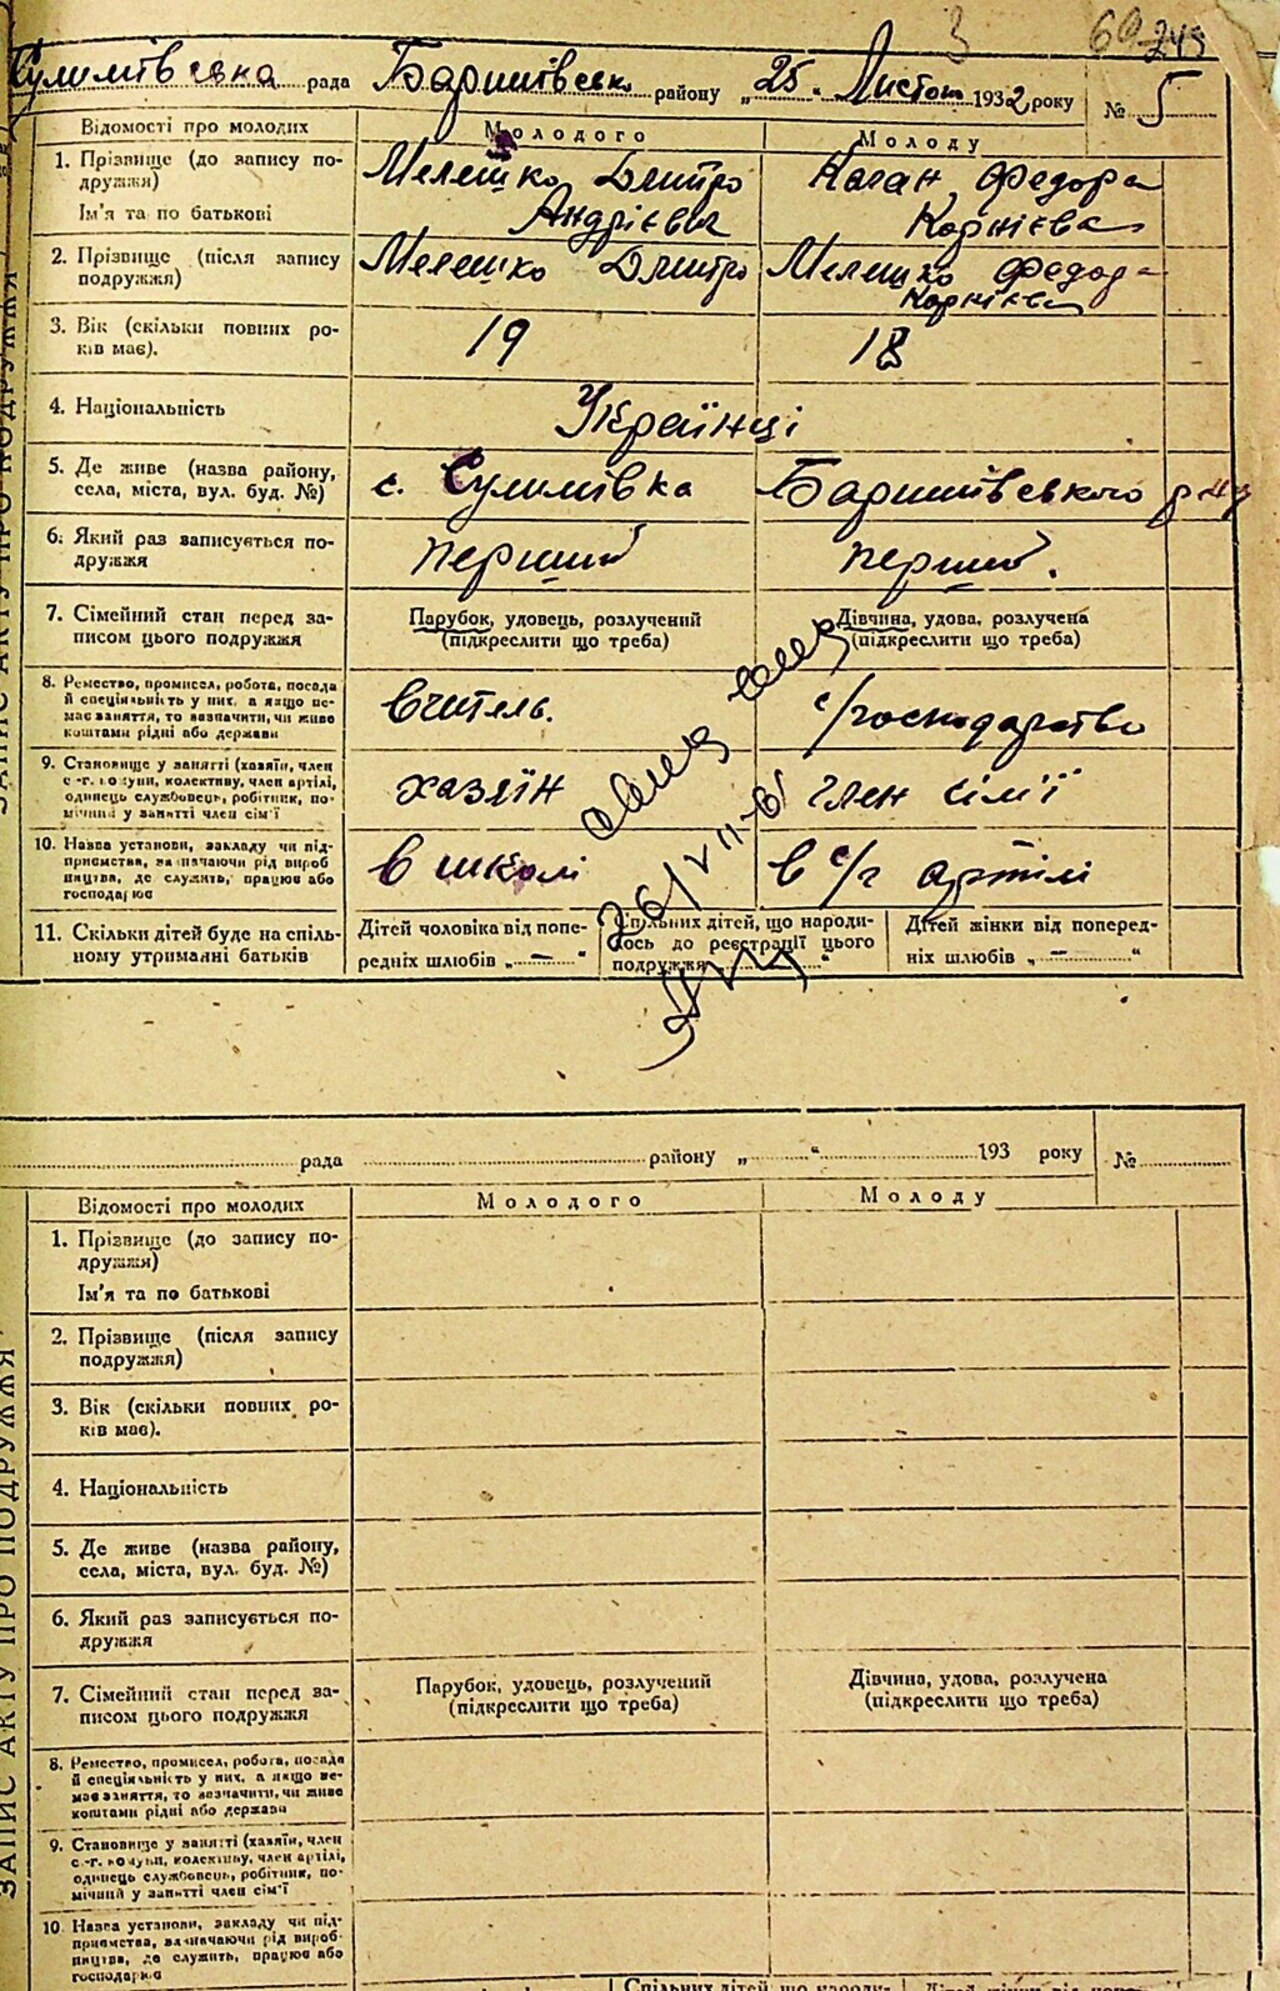 3 60 245
Сулимівська рада Баришівськ району „25“ Листоп 1932 року № 5
Відомості про молодих Молодого Молоду
1. Прізвище (до запису по-
дружжя)
Мелешко Дмитро Каган Федора
Ім'я та по батькові Андрієвич Корнієва
2. Прізвище (після запису
подружжя)
Мелешко Дмитро Мелешко Федора
Корнієва
3. Вік (скільки повних ро-
ків має).
19 18
4. Національність Українці
5. Де живе (назва району,
села, міста, вул. буд. №)
с. Сулимівка Баришівського р-ну
6. Який раз записується по-
дружжя
перший перший.
7. Сімейний стан перед за-
писом цього подружжя
Парубок, удовець, розлучений
(підкреслити що треба)
Дівчина, удова, розлучена
(підкреслити що треба)
8. Ремество, промисел, робота, посада
й спеціяльність у них, а якщо не-
має заняття, то зазначити, чи живе
коштами рідні або держави
вчитель. с/господарство
9. Становище у занятті (хазяїн, член
с.-г. комуни, колективу, член артілі,
одинець службовець, робітник, по-
мічний у занятті член сім'ї
хазяїн член сім'ї
10. Назва установи, закладу чи під-
приємства, зазначаючи рід вироб-
ництва, де служить, працює або
господарює
в школі в с/г артілі
11. Скільки дітей буде на спіль-
ному утриманні батьків
Дітей чоловіка від попе-
редніх шлюбів „—“
Спільних дітей, що народи-
лось до реєстрації цього
подружжя „—“
Дітей жінки від поперед-
ніх шлюбів „—“
26/VII-61
ЗАПИС АКТУ ПРО ПОДРУЖЖЯ
рада району „ “ 193 року №
Відомості про молодих Молодого Молоду
1. Прізвище (до запису по-
дружжя)
Ім'я та по батькові
2. Прізвище (після запису
подружжя)
3. Вік (скільки повних ро-
ків має).
4. Національність
5. Де живе (назва району,
села, міста, вул. буд. №)
6. Який раз записується по-
дружжя
7. Сімейний стан перед за-
писом цього подружжя
Парубок, удовець, розлучений
(підкреслити що треба)
Дівчина, удова, розлучена
(підкреслити що треба)
8. Ремество, промисел, робота, посада
й спеціяльність у них, а якщо не-
має заняття, то зазначити, чи живе
коштами рідні або держави
9. Становище у занятті (хазяїн, член
с.-г. комуни, колективу, член артілі,
одинець службовець, робітник, по-
мічний у занятті член сім'ї
10. Назва установи, закладу чи під-
приємства, зазначаючи рід вироб-
ництва, де служить, працює або
господарює
Спільних дітей, що народи-
ЗАПИС АКТУ ПРО ПОДРУЖЖЯ